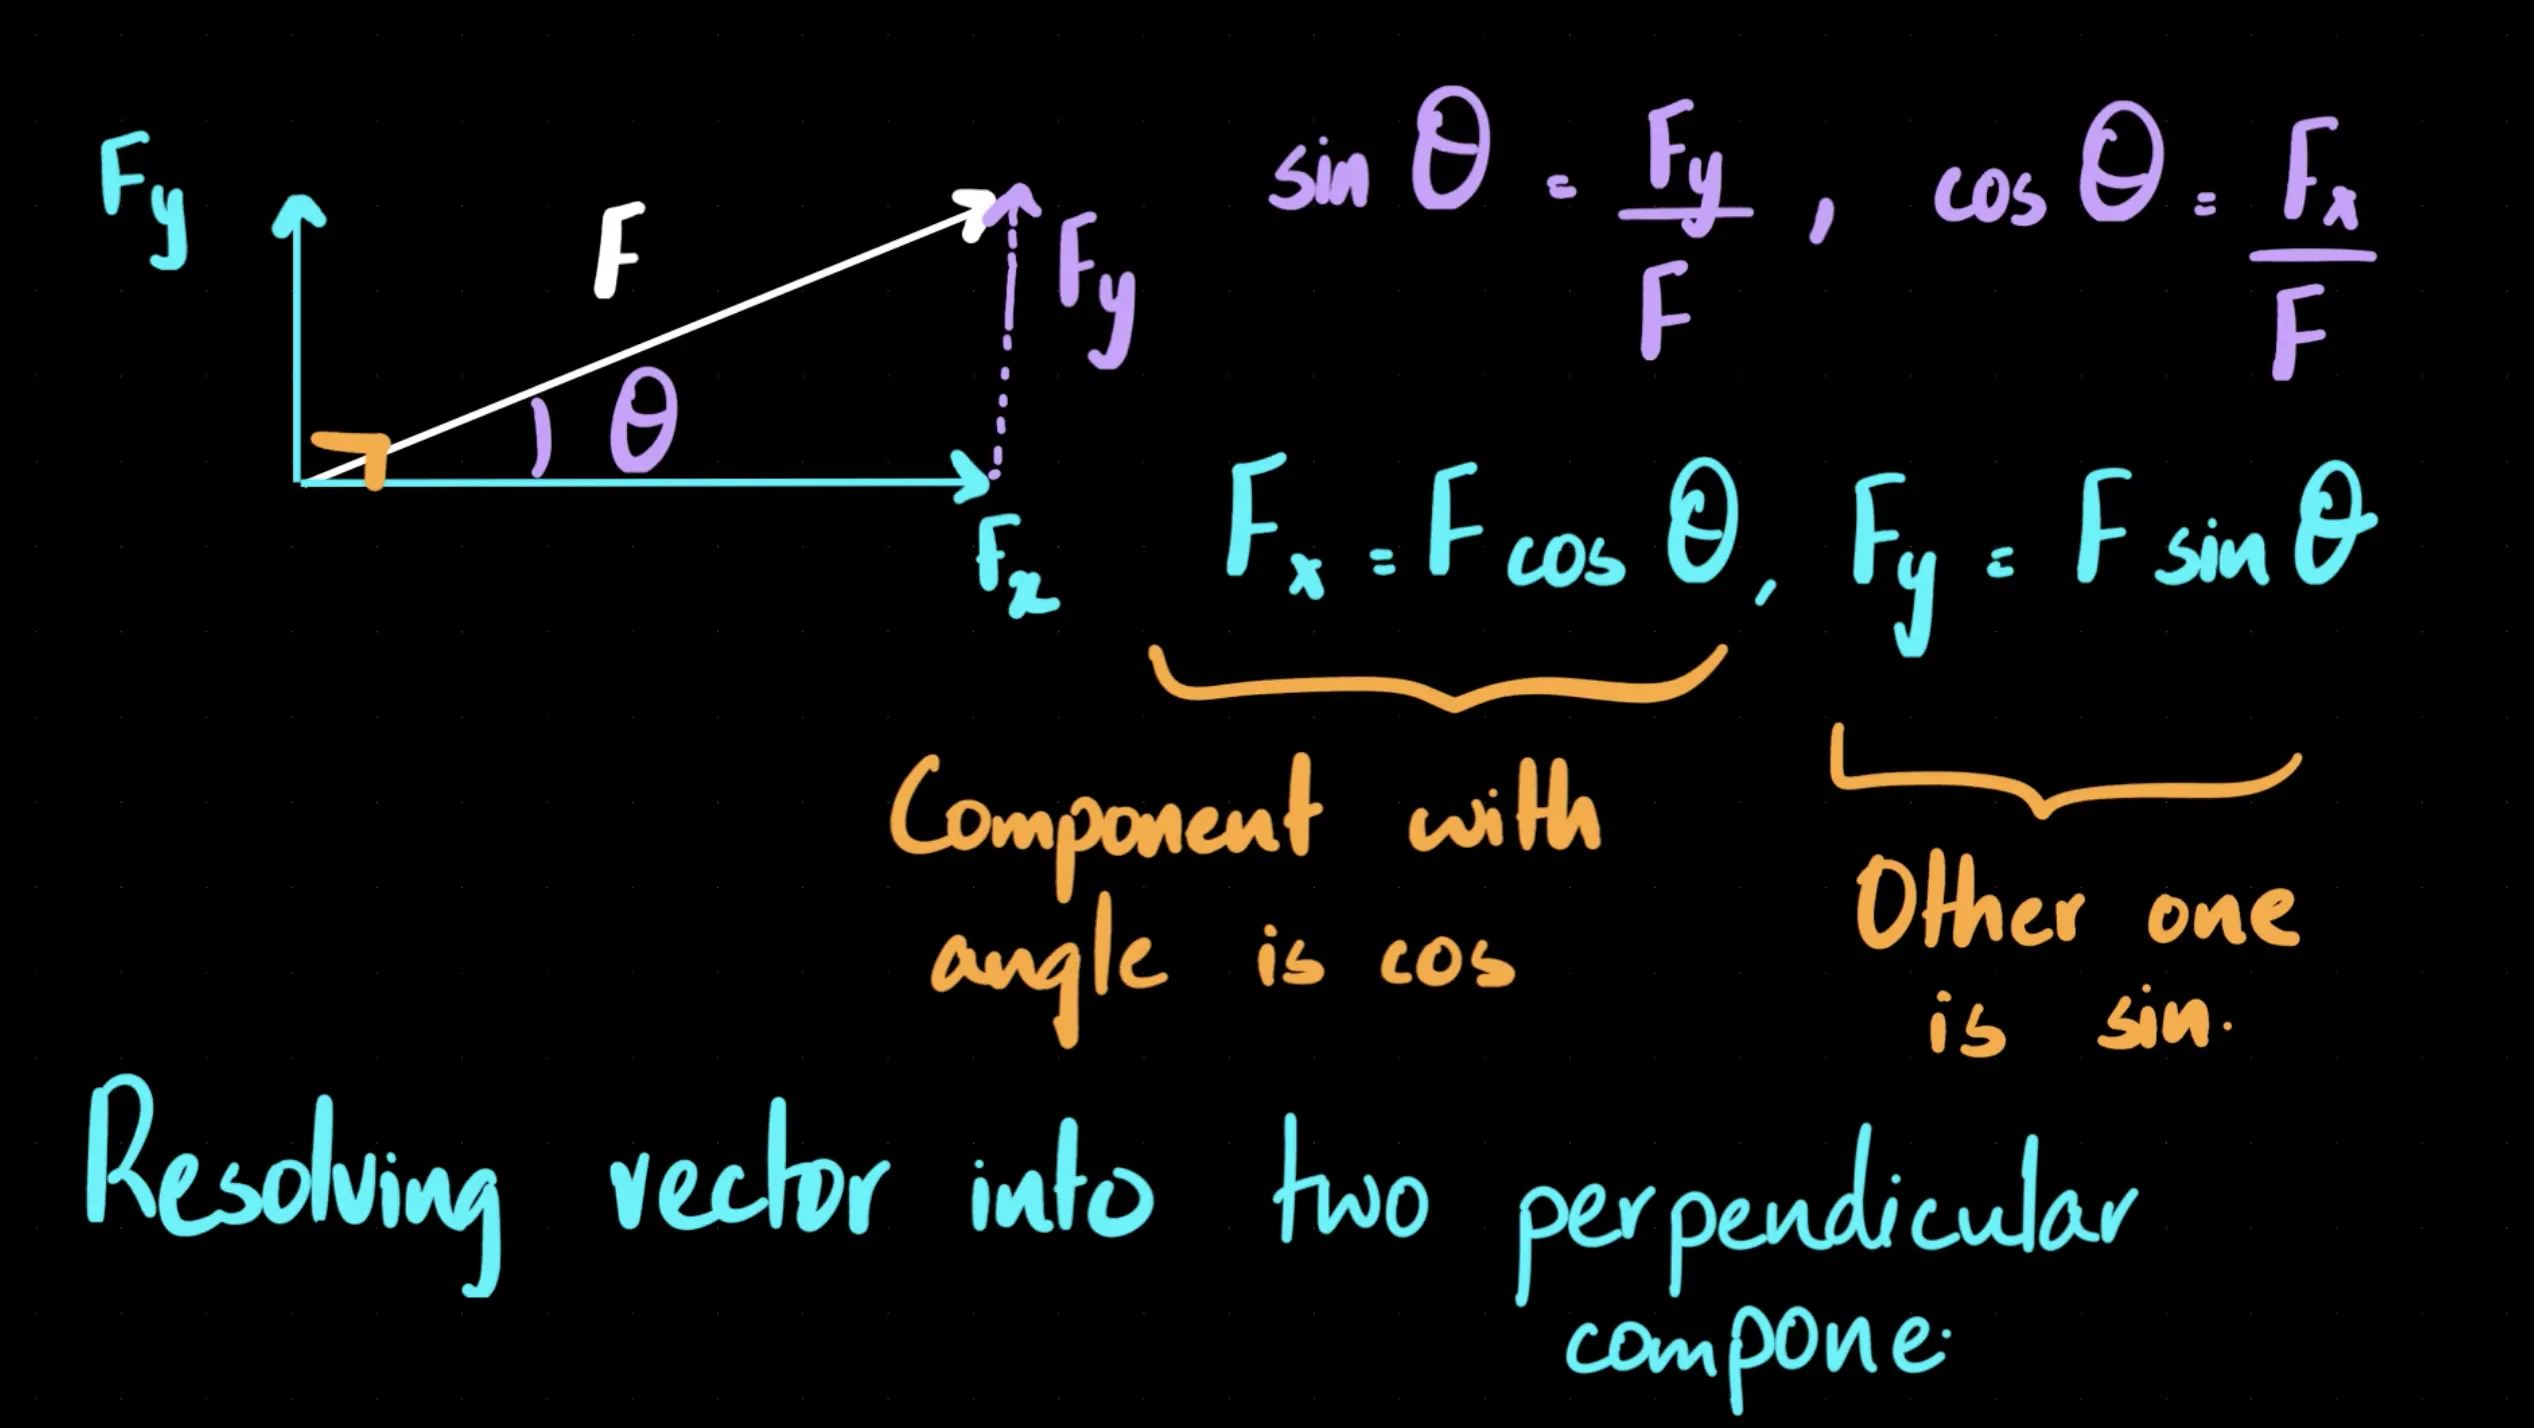 Fy
F
Fy
θ
Fx
sin θ = Fy/F , cos θ = Fx/F
Fx = F cos θ, Fy = F sin θ
Component with
angle is cos
Other one
is sin.
Resolving vector into two perpendicular
compone